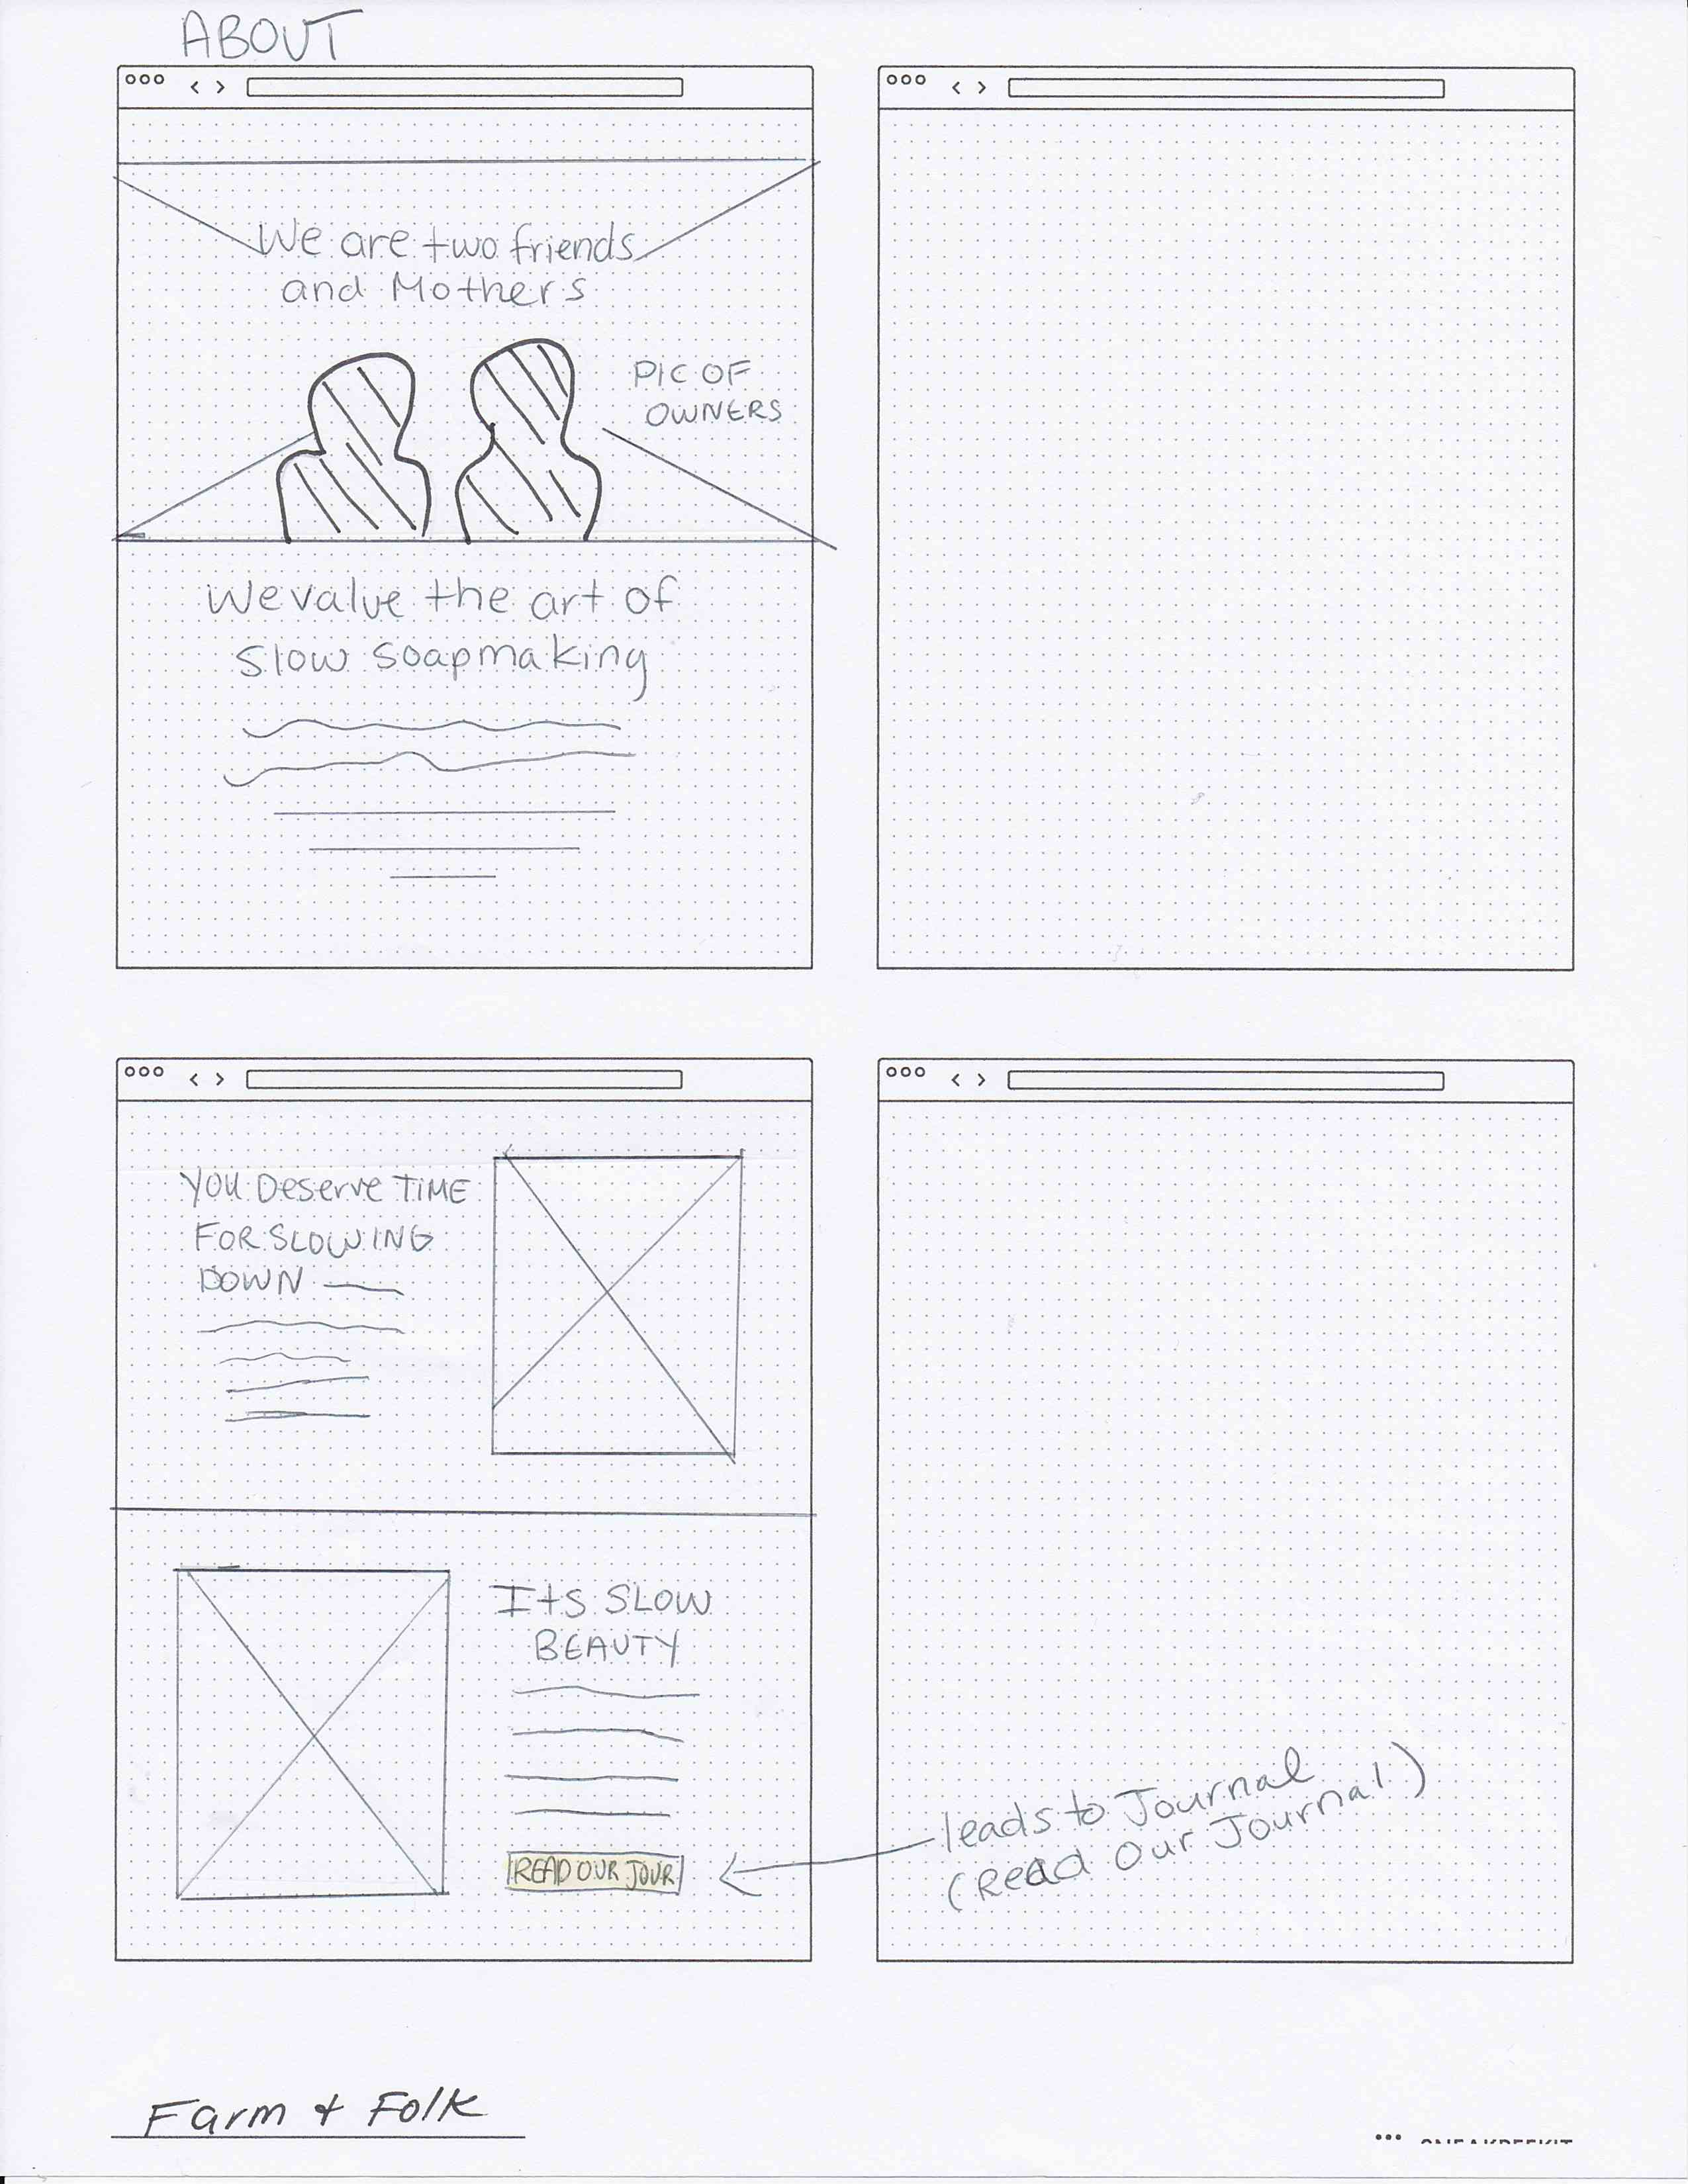 ABOUT
We are two friends
and Mothers
PIC OF
OWNERS
We value the art of
slow soapmaking
YOU Deserve TIME
FOR SLOWING
DOWN
Its SLOW
BEAUTY
READ OUR JOUR
leads to Journal
(Read Our Journal)
Farm + Folk